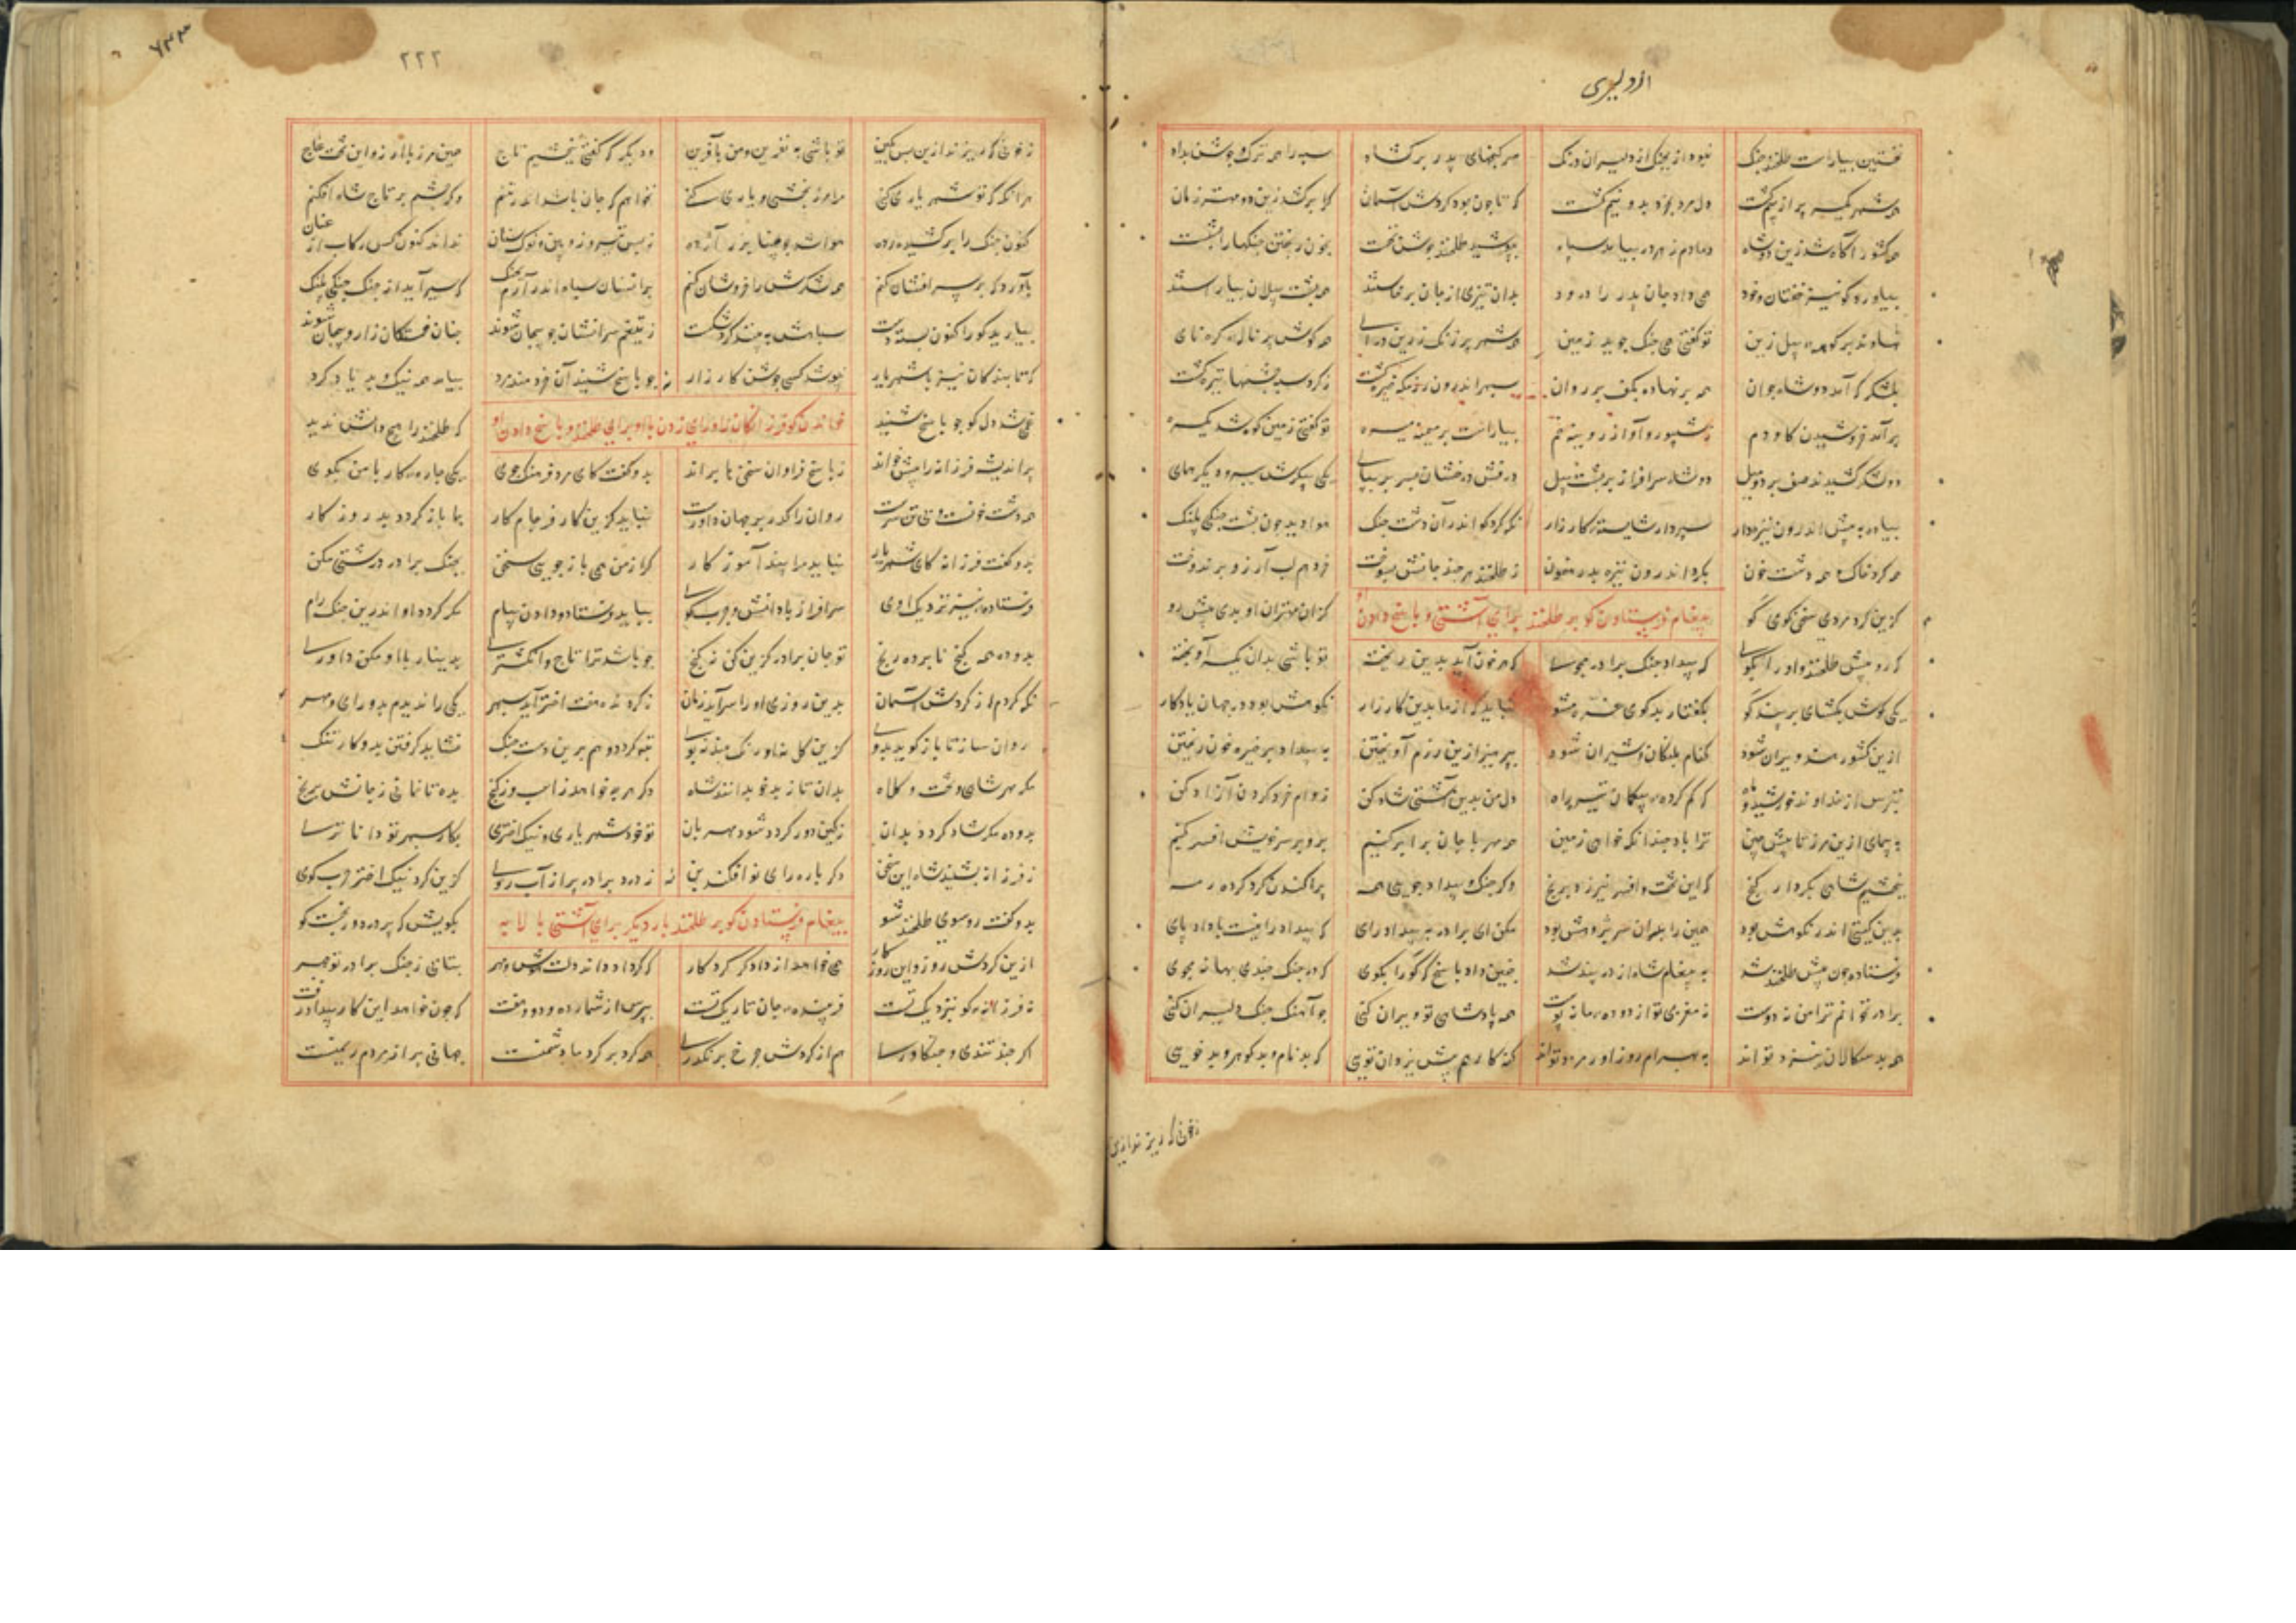 از دلیری
نخستین بیاراست طلخند جنگ نبود از بجنگ از دلیران درنگ سر گنجهای پدر بر گشاد سپه را همه ترک و جوشن بداد
همه شهر یکسر پر از بیم گشت دل مرد بخرد بدو نیم گشت که تا چون بود گردش آسمان کرا برکشد زین دو مهتر زمان
همه کشور آگاه شد زین دو شاه دمادم ز هر در بیامد سپاه بپوشید طلخند جوشن نخست بخون ریختن چنگها را بشست
بیاورد گو نیز خفتان و خود همی داد جان پدر را درود بدان تیزی از جای برخاستند همه پشت پیلان بیاراستند
نهادند بر کوهه پیل زین تو گفتی همی جنگ جوید زمین همه شهر پر زنگ زرین درای همه گوش پر ناله کره نای
بلشکر گه آمد دو شاه جوان همه بر نهاده بکف بر روان سپهر اندرون رزمگه خیره گشت ز گرد سپه چشمها تیره گشت
بر آمد خروشیدن گاو دم ز شیپور و آواز رویینه خم بیاراست بر میمنه میسره تو گفتی زمین کوه شد یکسره
دو لشکر کشیدند صف بر دو میل دو شاه سرافراز بر پشت پیل درفش درفشان بسر بر بپای یکی پیکرش ببر و دیگر همای
پیاده به پیش اندرون نیزه دار سپردار شایسته کارزار نگه کرد گو اندر آن دشت جنگ هوا دید چون پشت جنگی پلنگ
همه گرد خاک و همه دشت خون بگرد اندرون نیزه بد رهنمون ز طلخند هر چند جانش بسوخت ز درهم لب آرزو بر بدوخت
گزین کرد مردی سخن گوی گو کزان مهتران او بدی پیش رو
پیغام فرستادن گو بر طلخند برای آشتی و پاسخ دادن او
که رو پیش طلخند و او را بگوی که بیداد جنگ برادر مجوی که هر خون که آید بدین ریخته تو باشی بدان گیتی آویخته
یکی گوش بگشای بر پند گو بگفتار بدگوی غره مشو نباید که از ما بدین کارزار نکوهش بود در جهان یادگار
ازین کشور هند ویران شود کنام پلنگان و شیران شود بپرهیز ازین رزم آویختن به بیداد بر خیره خون ریختن
بترس از خداوند خورشید و ماه دل من بدین آشتی شاد کن ز وام خرد گردن آزاد کن
به پیمای ازین مرز تا پیش چین ترا باد چندانکه خواهی زمین همه مهر با جان برابر کنیم بدو بر سر خویش افسر کنیم
ببخشیم شاهی بکردار گنج که این تخت و افسر نیرزد برنج وگر جنگ و بیداد جویی همه پراکندن گرد کرده رمه
بدین گیتی اندر نکوهش بود همین را بدان سر پژوهش بود مکن ای برادر به بیداد رای که بیداد را نیست با داد پای
فرستاده چون پیش طلخند شد به پیغام شاه از در پند شد چنین داد پاسخ که گو را بگوی که در جنگ چندی بهانه مجوی
برادر نخوانم ترا من نه دوست نه مغزی تو از دوده ما نه پوست همه پادشاهی تو ویران کنی چو آهنگ جنگ دلیران کنی
همه بد سگالان بنزد تو اند به بهرام روز اورمزد تو اند گنه کار هم پیش یزدان تویی که بد نام و بد گوهر و بد خویی
ز خونی که ریزند ازین
۲۲۲
۶۳۳
ز خونی که ریزند ازین پس بکین تو باشی به نفرین و من بآفرین و دیگر که گفتی ببخشیم تاج همین مرز با ارز و این تخت عاج
هر آنگه که تو شهریاری کنی مرا مرز بخشی و یاری کنی نخواهم که جان باشد اندر تنم وگر چشم بر تاج شاه افکنم
کنون جنگ را برکشیده رده هوا شد چو دیبا بزر آژده ز بس تیر و زوبین و نوک سنان نداند کنون کس رکاب از عنان
بآورد گه بر سر افشان کنم همه لشکرش را خروشان کنم بر آنسان سپاه اندر آرم بجنگ که سیر آید از جنگ جنگی پلنگ
بیارید گو را کنون بسته دست سپاهش به بیند گرد شکست ز تیغم سرانشان چو پیچان شوند چنان خستگان زار و بیجان شوند
که تا بندگان نیز با شهریار نپوشد کسی جوشن کارزار چو پاسخ شنید آن خردمند مرد بیامد همه نیک و بد یاد کرد
غمی شد دل گو چو پاسخ شنید که طلخند را هیچ دانش ندید
خواندن گو فرزانگان را و رای زدن با او برای طلخند و پاسخ دادن او
پر اندیشه فرزانه را پیش خواند ز پاسخ فراوان سخن ها براند بدو گفت کای مرد فرهنگ جوی یکی چاره کار با من بگوی
همه دشت خونست و بی تن سرست روان را گذر بر جهان داورست نباید کزین کار فرجام کار بما باز گردد بد روزگار
بدو گفت فرزانه کای شهریار نباید ترا پند آموزگار گر از من همی باز جویی سخن بجنگ برادر درشتی مکن
فرستاده نیز نزدیک اوی سرافراز با دانش و چرب گوی بباید فرستاد و دادن پیام بگر گردد او اندرین جنگ رام
بدو ده همه گنج نابرده رنج تو جان برادر گزین کن ز گنج چو باشد ترا تاج و انگشتری بدینار با او مکن داوری
نگه کردم از گردش آسمان بدین زودی او را سر آید زمان ز گردنده هفت اختر آید سپهر یکی را ندیدم بدو رای و مهر
تبه گردد و هم برین دشت جنگ نشاید گرفتن بدو کار تنگ
مگر مهر شاهی و تخت و کلاه بدان تا نه بد خو بدانند شاه دگر هر چه خواهد ز اسب و ز گنج بده تا نمانی ز جانش برنج
تو خود شهریاری و نیک اختری بکار سپهر تو دانا تری
ز فرزانه بشنید شاه این سخن دگر باره رای نو افکند بن ز درد برادر پر از آب روی گزین کرد نیک اختر چرب گوی
بدو گفت رو سوی طلخند شو بگویش که پر درد و رنجست گو
پیغام فرستادن گو بر طلخند بار دیگر برای آشتی با لابه
ازین گردش روز و این روزگار همی خواهد از دادگر کردگار که گرداند اندر دلت هوش و مهر بتابی ز جنگ برادر تو چهر
ز فرزانه کو بنزدیک تست فریبنده جان تاریک تست بپرس از شمار ده و دو و هفت که چون خواهد این کار بیداد رفت
اگر چند تندی و جنگاوری هم از گردش چرخ بر نگذری همه گرد بر گرد ما دشمنست جهانی پر از مردم ریمنست